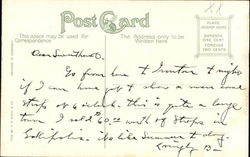 POST CARD
This space may be used for Correspondence
The Address only to be Written here
PLACE POSTAGE STAMP HERE
DOMESTIC ONE CENT
FOREIGN TWO CENTS
Dear Sweetheart:-
Go from here to Ironton to night
if I can have got a show a man some
Strops at 6 o'clock. this is quite a large
town I sold $60.00 worth of Strops in
Gallipolis. its like Summer to day.
Lovingly B-